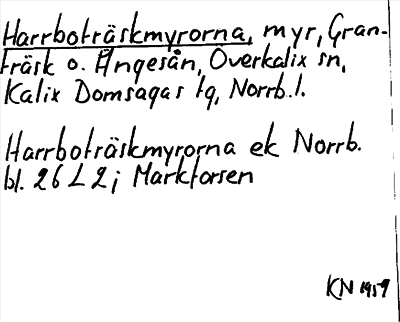 Harrboträskmyrorna, myr, Gran-
träsk o. Ängesån, Överkalix sn,
Kalix Domsagas tg, Norrb. l.
Harrboträskmyrorna ek Norrb.
bl. 26 L 2j Markforsen
KN 1959